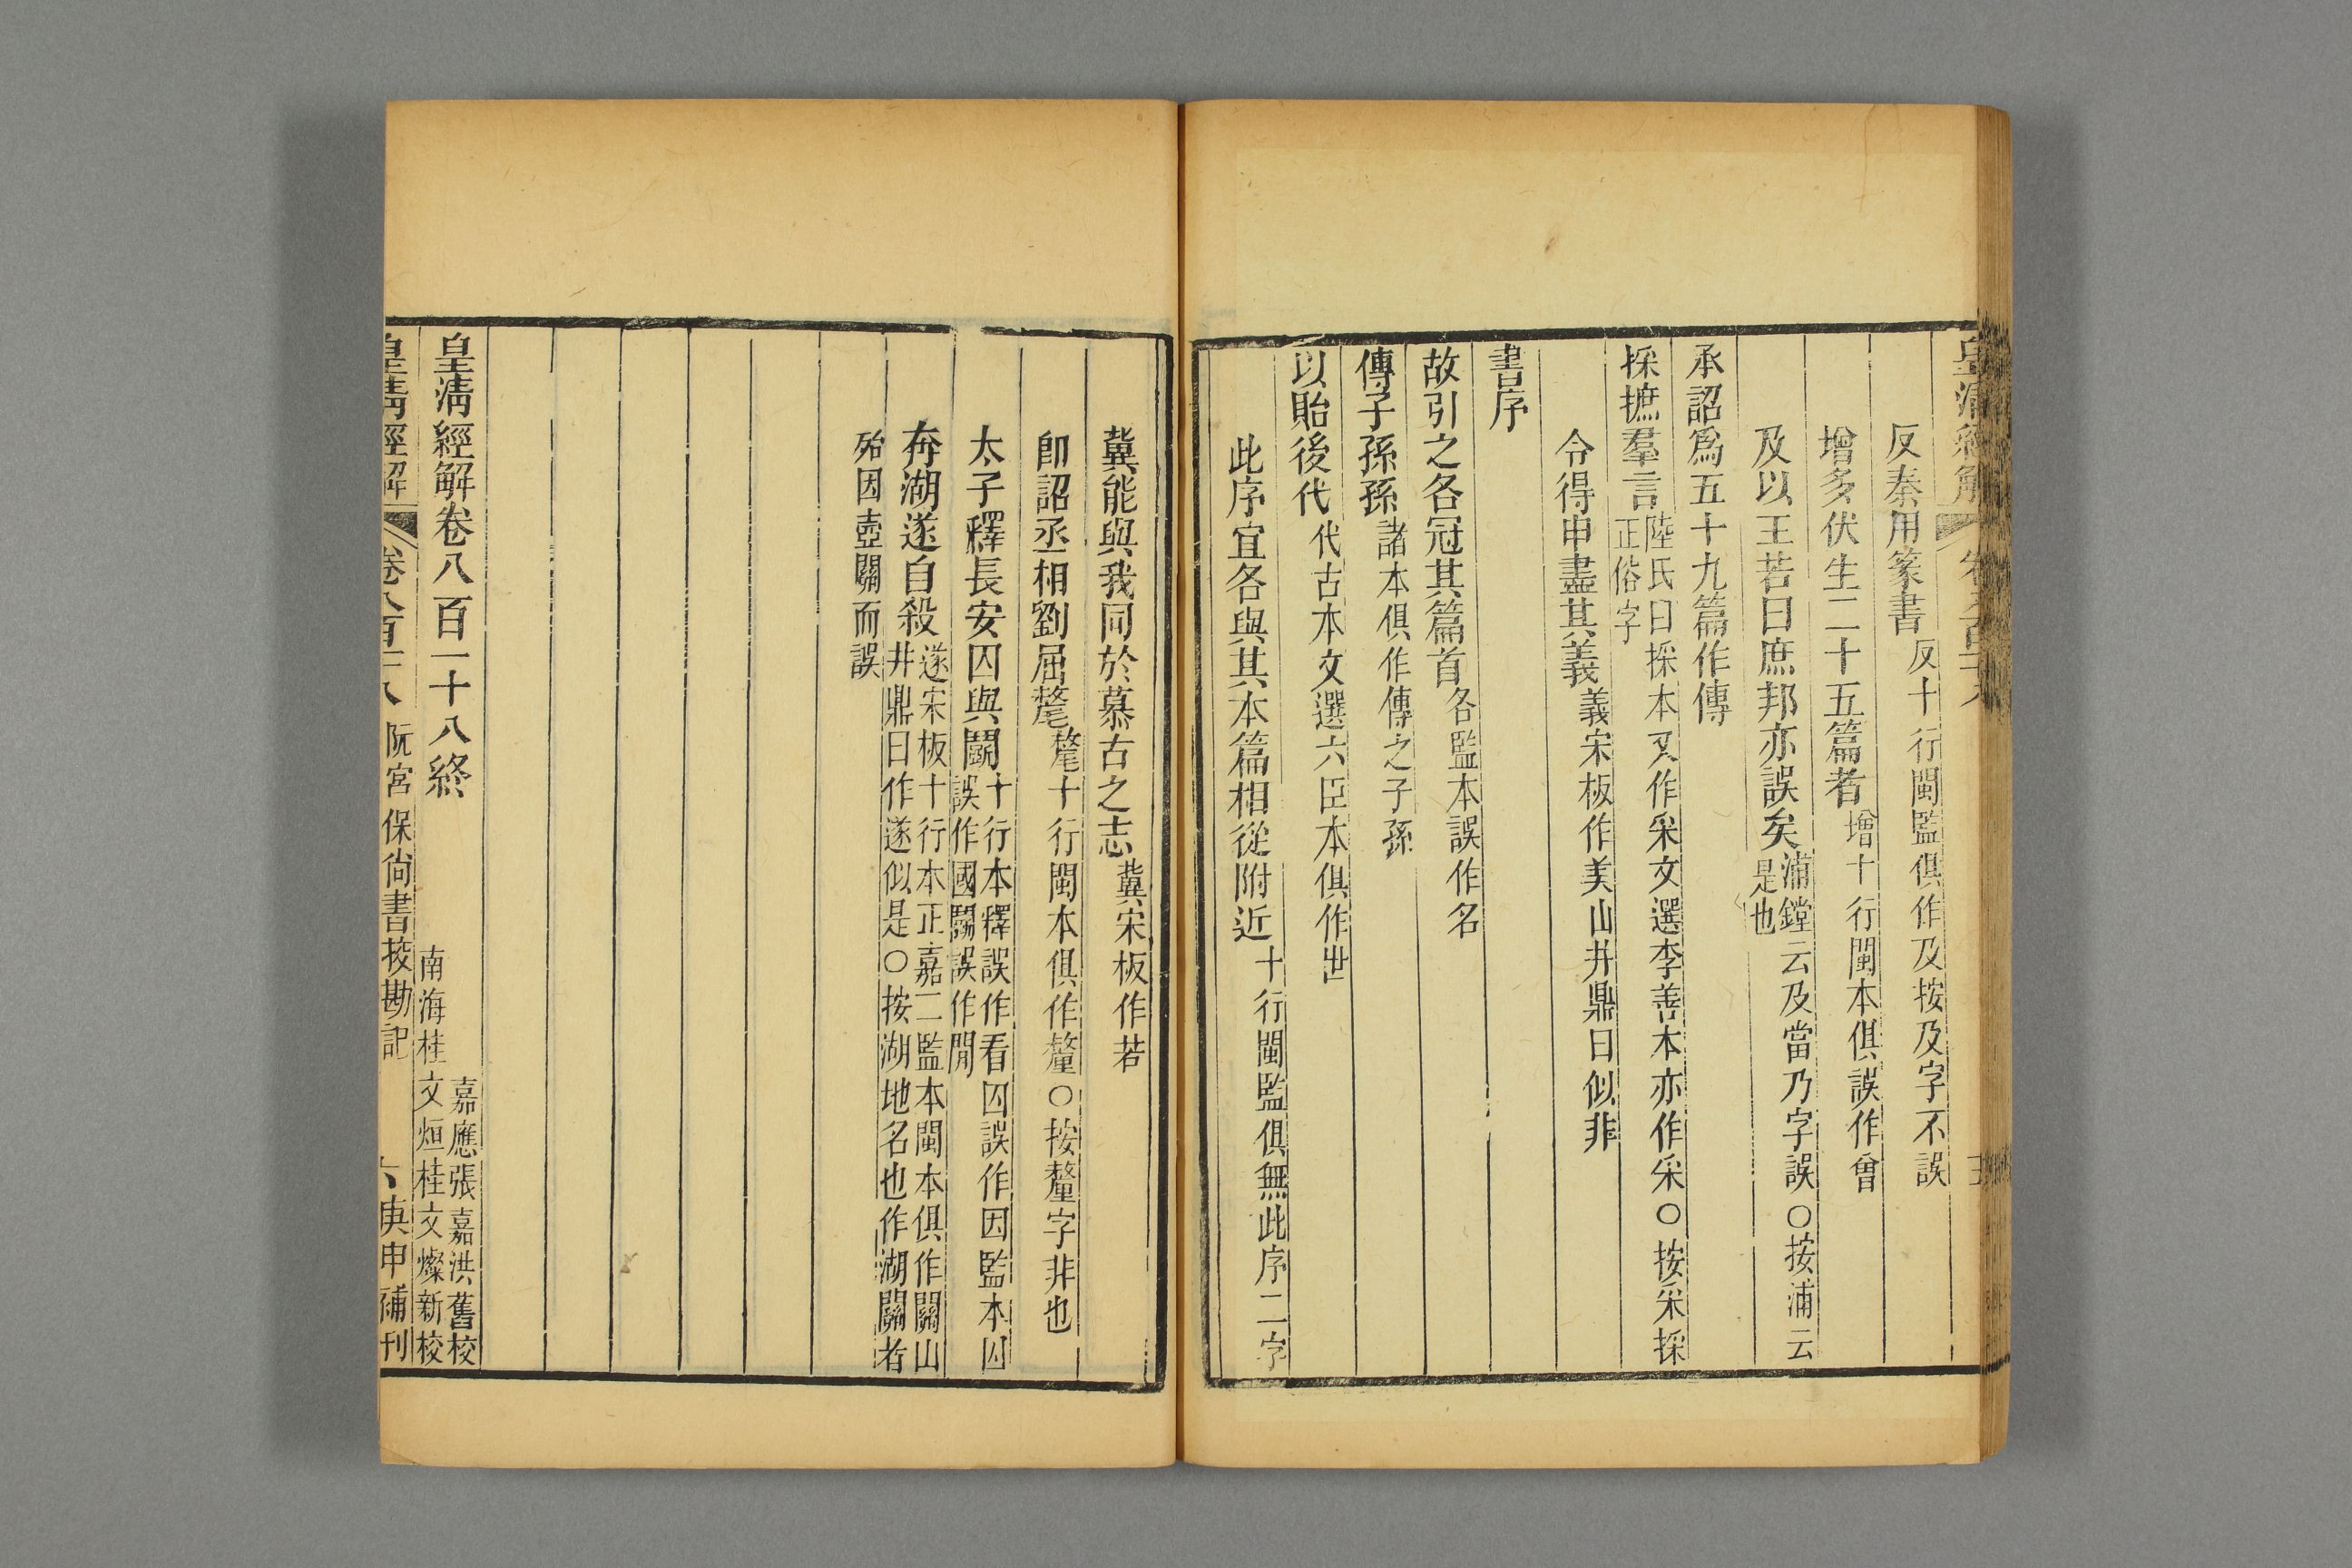 反秦用篆書反十行閩監俱作及按及字不誤
增多伏生二十五篇者增十行閩本俱誤作曾
及以王若曰庶邦亦誤矣浦鏜云及當乃字誤○按浦云是也
承詔爲五十九篇作傳
採摭羣言陸氏曰採本又作采文選李善本亦作采○按采採正俗字
令得申盡其義義宋板作美山井鼎曰似非
書序
故引之各冠其篇首各監本誤作名
傳子孫孫諸本俱作傳之子孫
以貽後代代古本文選六臣本俱作世
此序宜各與其本篇相從附近十行閩監俱無此序二字
冀能與我同於慕古之志冀宋板作若
卽詔丞相劉屈氂氂十行閩本俱作釐○按釐字非也
太子釋長安囚與鬭十行本釋誤作看囚誤作因監本囚誤作國鬭誤作閒
奔湖遂自殺遂宋板十行本正嘉二監本閩本俱作關山井鼎曰作遂似是○按湖地名也作湖關者
殆因壺關而誤
皇淸經解卷八百一十八終
嘉應張嘉洪舊校
南海桂文烜桂文燦新校
皇淸經解
卷八百十八
阮宮保尙書挍勘記
庚申補刊